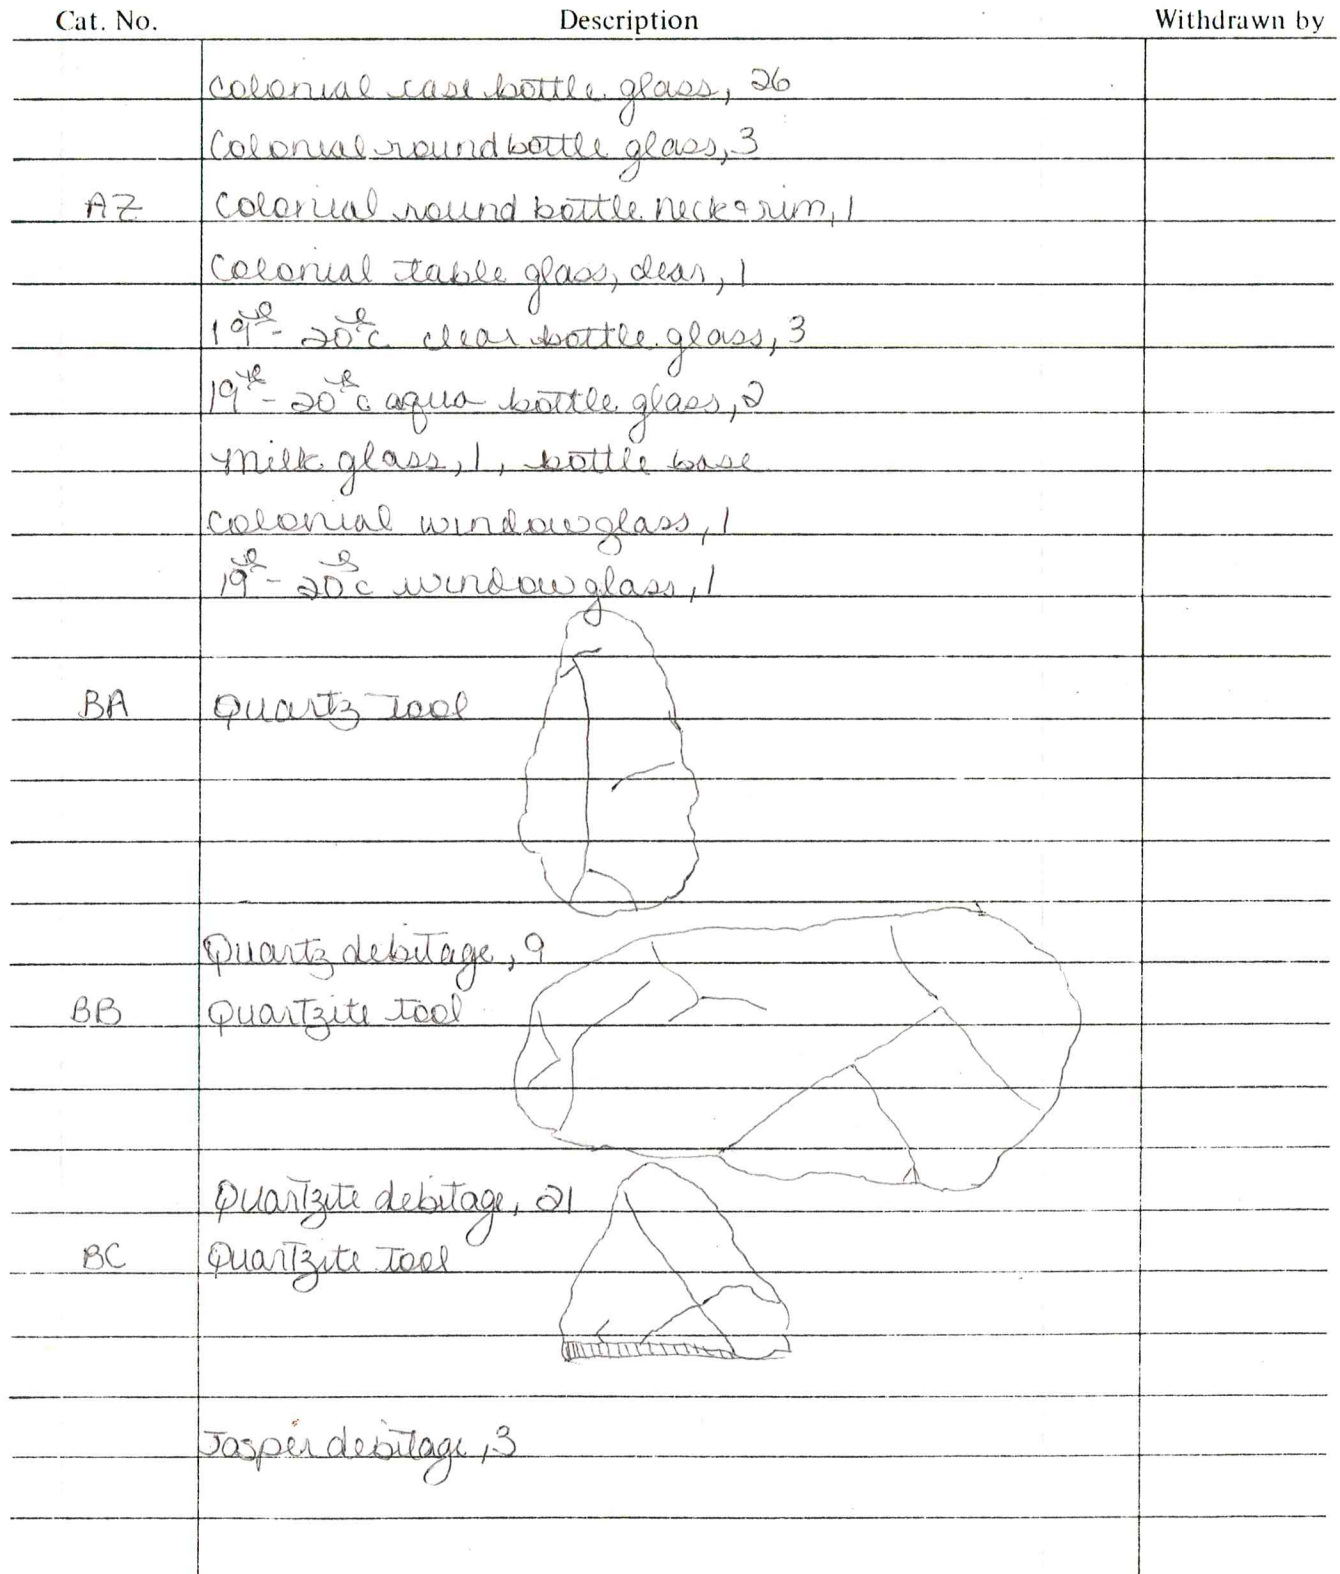 Cat. No. Description Withdrawn by
Colonial case bottle glass, 26
Colonial round bottle glass, 3
AZ Colonial round bottle neck & rim, 1
Colonial table glass, clear, 1
19th - 20th c clear bottle glass, 3
19th - 20th c aqua bottle glass, 2
Milk glass, 1, bottle base
Colonial window glass, 1
19th - 20th c window glass, 1
BA Quartz Tool
Quartz debitage, 9
BB Quartzite tool
Quartzite debitage, 21
BC Quartzite Tool
Jasper debitage, 3